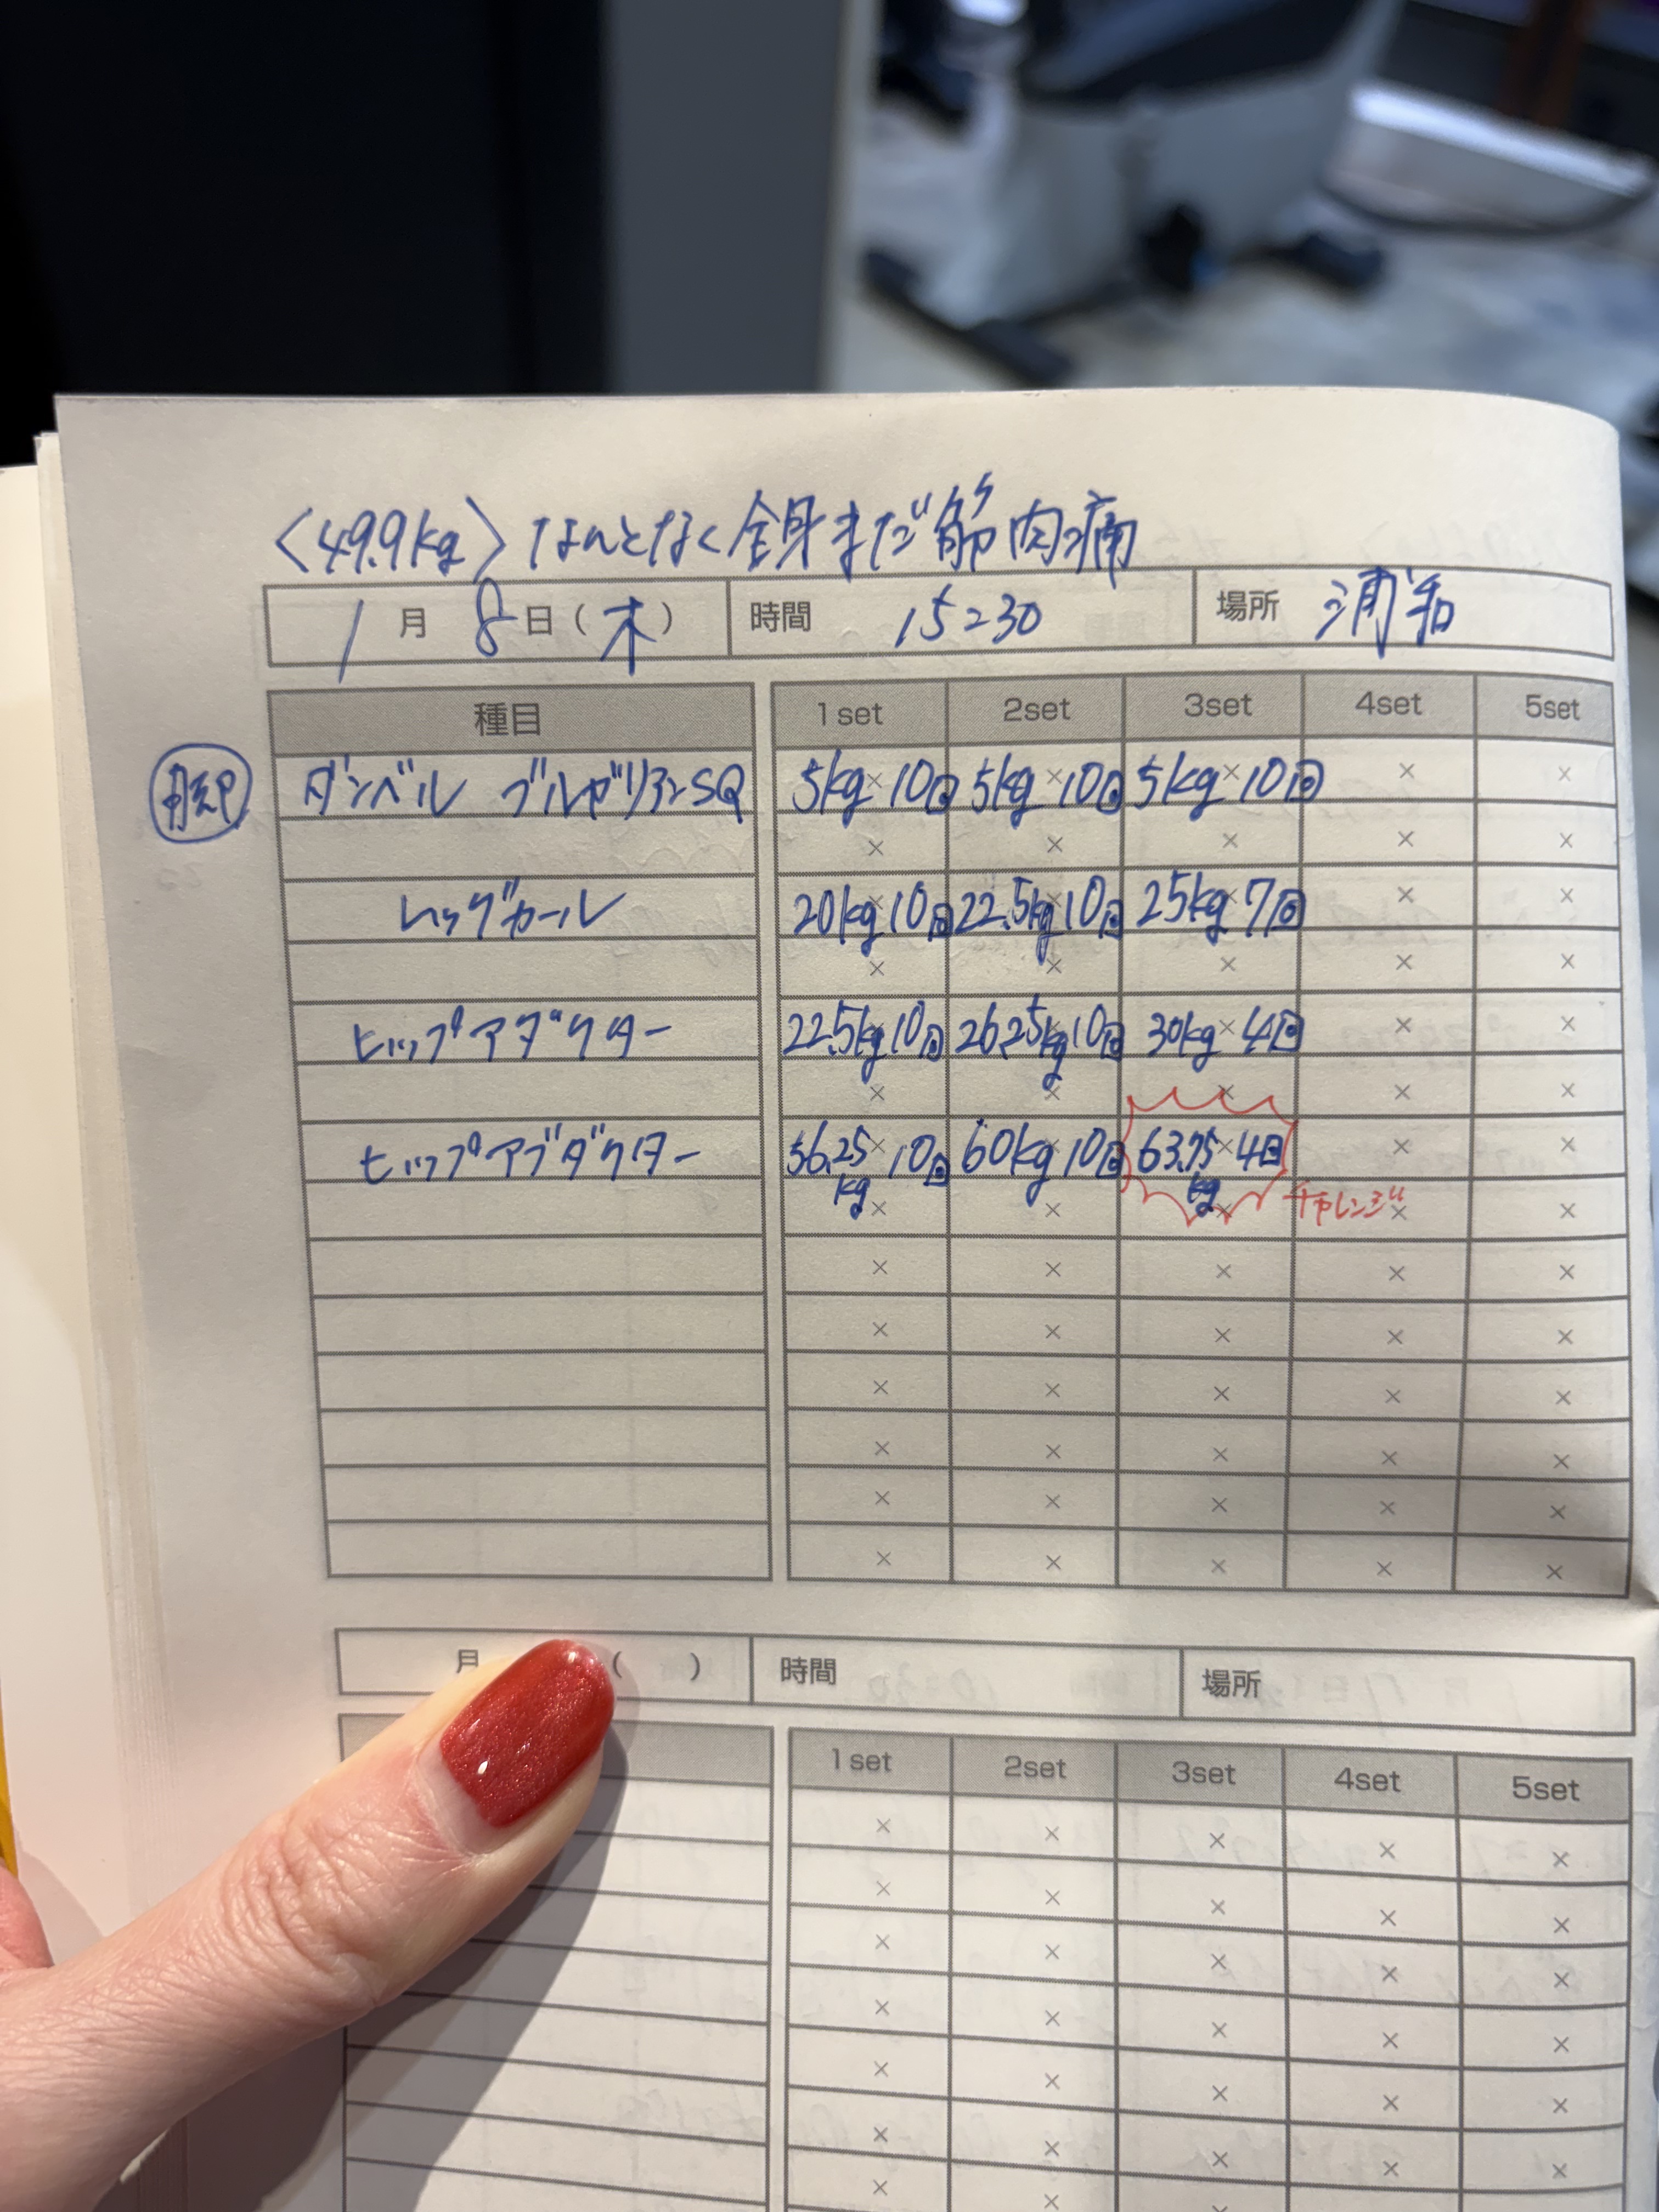 〈49.9kg〉なんとなく全身まだ筋肉痛
1月8日(木) 時間 15:30 場所 浦和
種目 1set 2set 3set 4set 5set
脚 ダンベル ブルガリアンSQ 5kg×10回 5kg×10回 5kg×10回 × ×
× × × × ×
レッグカール 20kg×10回 22.5kg×10回 25kg×7回 × ×
× × × × ×
ヒップアダクター 22.5kg×10回 26.25kg×10回 30kg×4回 × ×
× × × × ×
ヒップアブダクター 56.25kg×10回 60kg×10回 63.75kg×4回 × ×
× × × チャレンジ × ×
× × × × ×
× × × × ×
× × × × ×
× × × × ×
× × × × ×
× × × × ×
月 ( ) 時間 場所
1set 2set 3set 4set 5set
× × × × ×
× × × × ×
× × × × ×
× × × × ×
× × × × ×
× × × × ×
× × × × ×